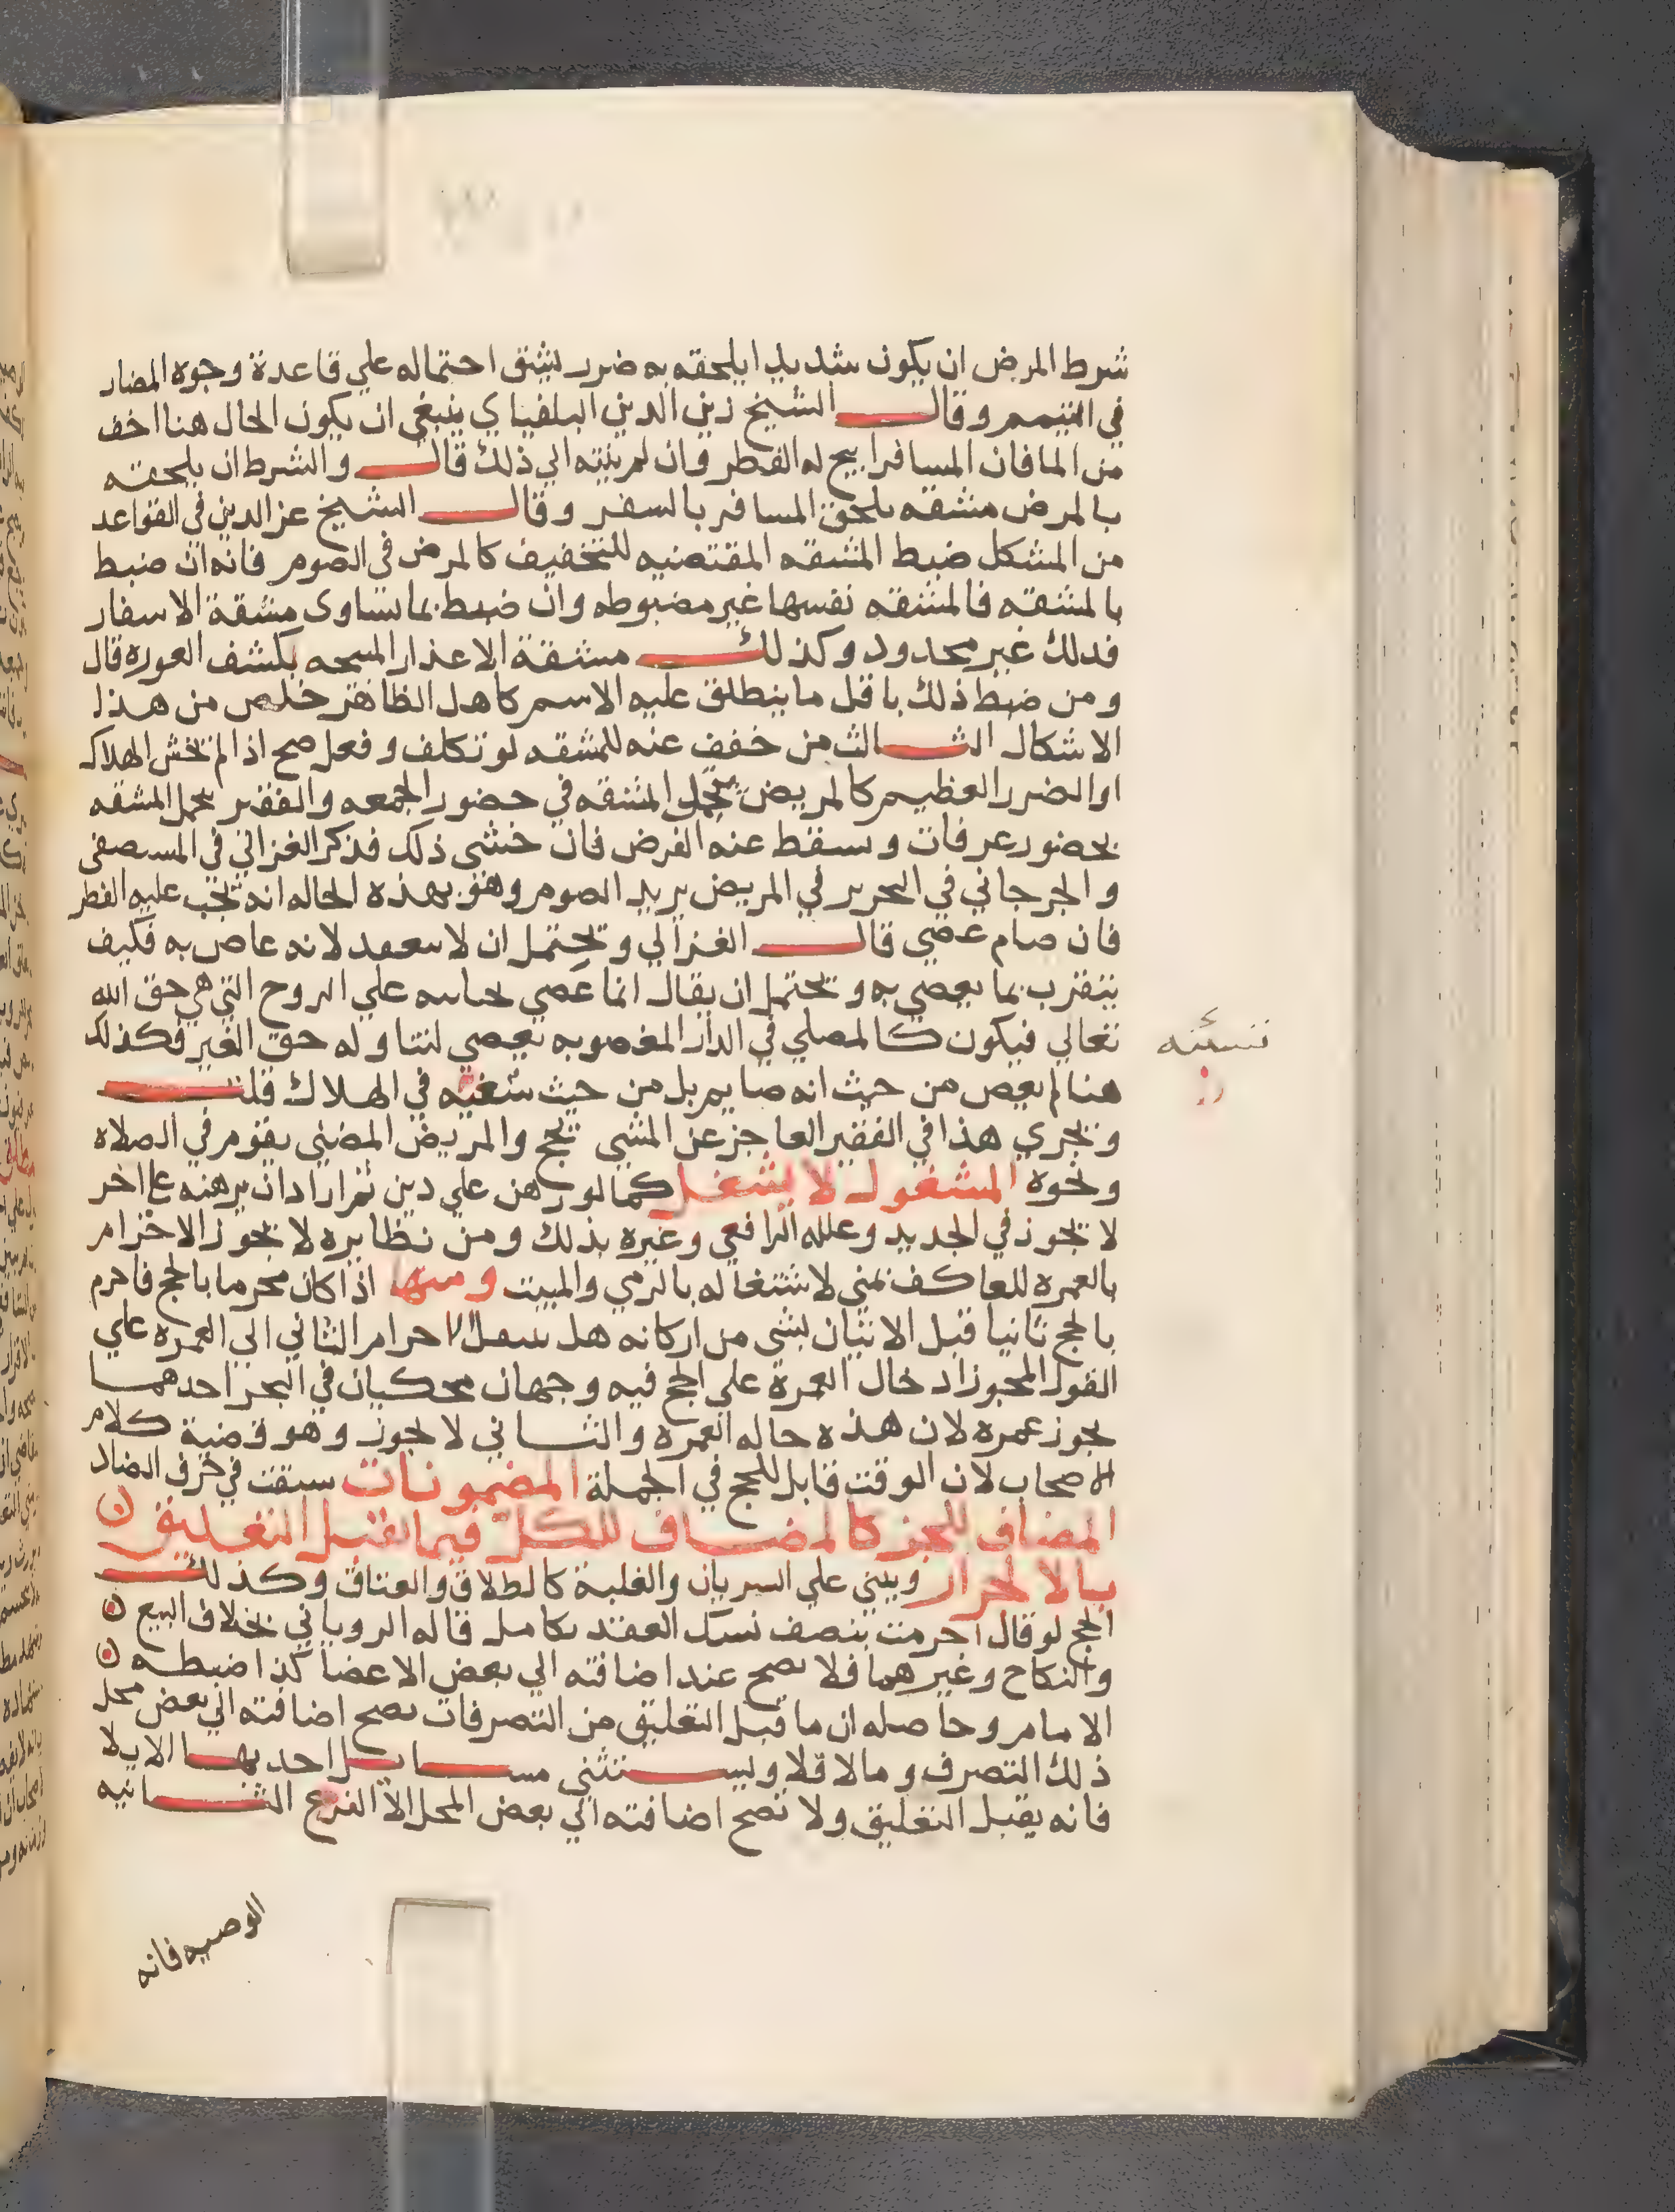 شرط المرض ان يكون شديدا يلحقه به ضرر يشق احتماله علي قاعدة وجوه المضار
في التيمم وقال الشيخ زين الدين البلفياي ينبغي ان يكون الحال هنا اخف
من الما فان المسافر ابيح له الفطر وان لم ينته الي ذلك قال والشرط ان يلحقه
بالمرض مشقه تلحق المسافر بالسفر وقال الشيخ عز الدين في القواعد
من المشكل ضبط المشقه المقتضيه للتخفيف كالمرض في الصوم فانه ان ضبط
بالمشقه فالمشقه نفسها غير مضبوطه وان ضبط بما يساوى مشقة الاسفار
فدلك غير محدود وكذلك مشقة الاعذار المبيحه بكشف العوره قال
ومن ضبط ذلك باقل ما ينطلق عليه الاسم كاهل الظاهر خلص من هذا
الاشكال الثالث من خفف عنه للمشقه لو تكلف وفعل صح اذا لم يخش الهلاك
او الضرر العظيم كالمريض يتحمل المشقه في حضور الجمعه والفقير يحمل المشقه
بحضور عرفات وسقط عنه الفرض فان خشى ذلك فذكر الغزالي في المستصفى
والجرجاني في التحرير في المريض يريد الصوم وهو بهذه الحاله انه يجب عليه الفطر
فان صام عصى قال الغزالي ويحتمل ان لا ينعقد لانه عاص به فكيف
يتقرب بما يعصي به ويحتمل ان يقال انما عصي بجنايته علي الروح التي هي حق الله
تعالي فيكون كالمصلي في الدار المغصوبه يعصي لتناوله حق الغير فكذلك
هنا لم يعص من حيث انه صايم بل من حيث سعيه في الهلاك قلت
ويجري هذا في الفقير العاجز عن المشي يحج والمريض المضنى يقوم في الصلاه
ونحوه المشغول لا يشغل كما لو رهن علي دين ثم اراد ان يرهنه علي اخر
لا يجوز في الجديد وعلله الرافعي وغيره بذلك ومن نظايره لا يجوز الاحرام
بالعمره للعاكف بمنى لاشتغاله بالرمي والمبيت ومنها اذا كان محرما بالحج فاحرم
بالحج ثانيا قبل الاتيان بشى من اركانه هل ينتقل الاحرام الثاني الي العمره علي
القول المجوز ادخال العمرة علي الحج فيه وجهان محكيان في البحر احدهما
يجوز عمره لان هذه حاله العمره والثاني لا يجوز وهو قضية كلام
الاصحاب لان الوقت قابل للحج في الجملة المضمونات سبقت في حرف الضاد
المضاف للجز كالمضاف للكل فيما يقبل التعليق
بالاغرار ويبنى علي السريان والغلبة كالطلاق والعتاق وكذلك
الحج لو قال احرمت بنصف نسك انعقد بكامل قاله الروياني بخلاف البيع
والنكاح وغيرهما فلا يصح عند اضافته الي بعض الاعضا كذا ضبطه
الامام وحاصله ان ما قبل التعليق من التصرفات يصح اضافته الي بعض محل
ذلك التصرف ومالا فلا ويستثنى مسايل احديها الايلا
فانه يقبل التعليق ولا تصح اضافته الي بعض المحل الا الفرج الثانيه
الوصيه فانه